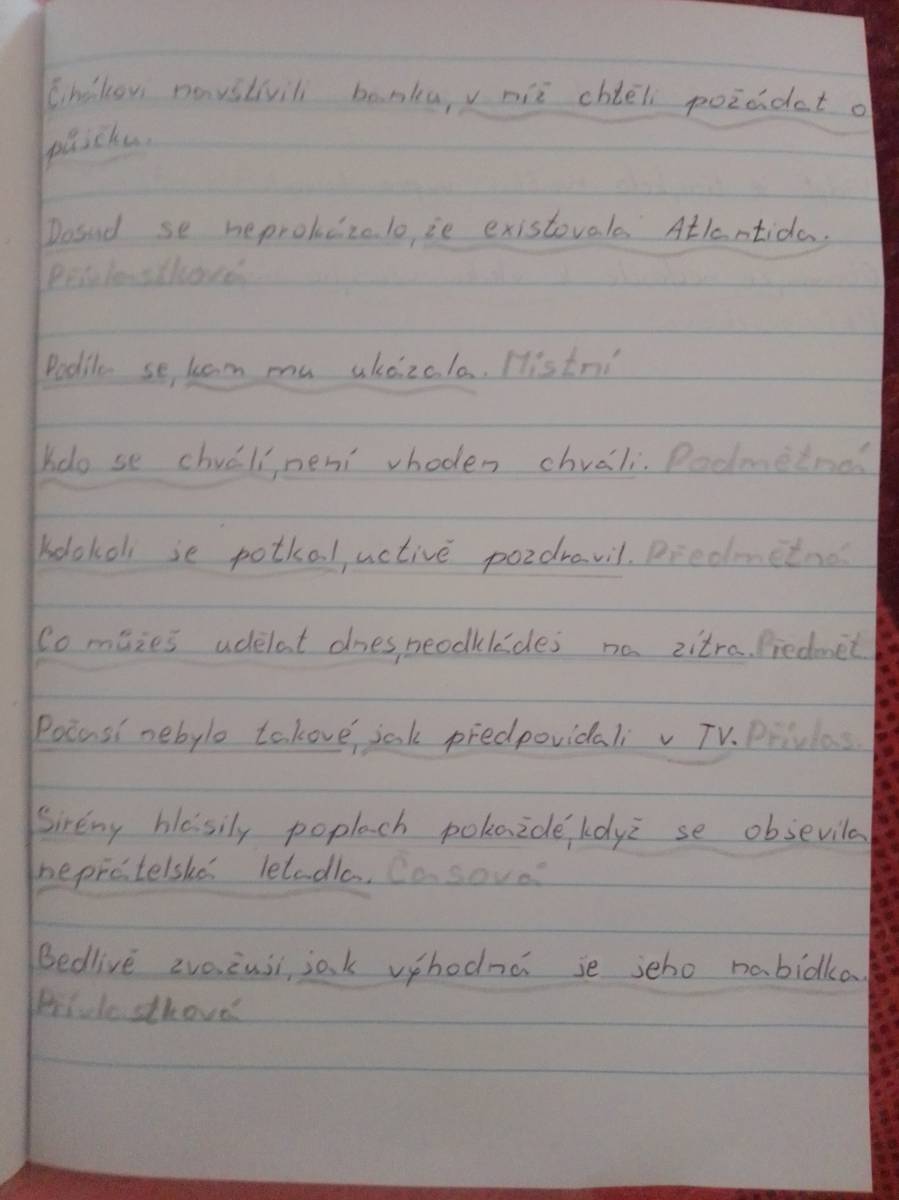 Čihákovi navštívili banku, v níž chtěli požádat o
půjčku.
Dosud se neprokázalo, že existovala Atlantida.
Přívlastková
Podíla se, kam mu ukázala. Místní
Kdo se chválí, není vhoden chváli. Podmětná
Kdokoli je potkal, uctivě pozdravil. Předmětná
Co můžeš udělat dnes, neodkládej na zítra. Předmět
Počasí nebylo takové, jak předpovídali v TV. Přívlas.
Sirény hlásily poplach pokaždé, když se objevila
nepřátelská letadla. Časová
Bedlivě zvažuji, jak výhodná je jeho nabídka.
Přívlastková